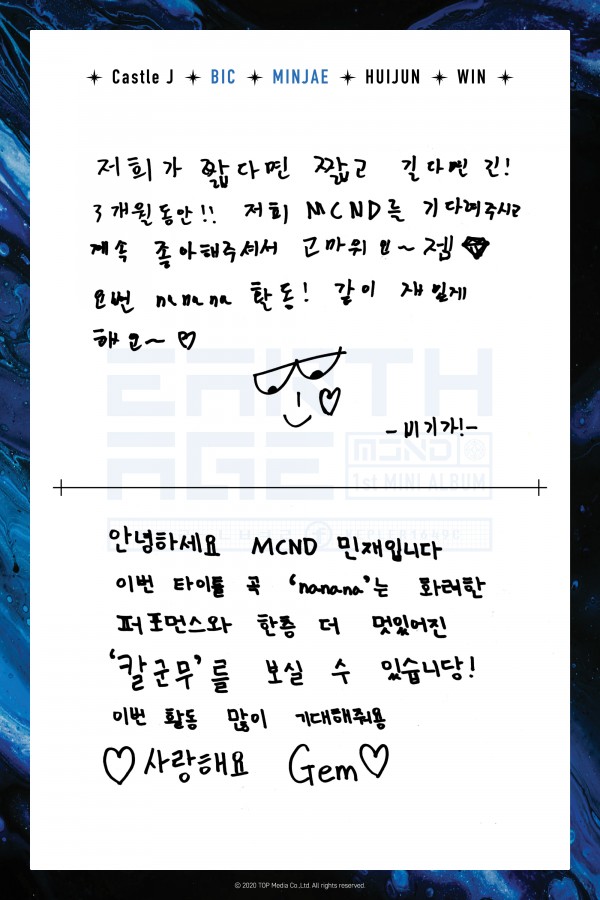 Castle J BIC MINJAE HUIJUN WIN
저희가 짧다면 짧고 길다면 긴!
3개월동안!! 저희 MCND를 기다려주시고
계속 좋아해주셔서 고마워요~ 젬
요번 nanana 활동! 같이 재밌게
해요~♡
-비기가!-
EARTH
AGE
MCND
1st MINI ALBUM
안녕하세요 MCND 민재입니다
이번 타이틀 곡 'nanana'는 화려한
퍼포먼스와 한층 더 멋있어진
'칼군무'를 보실 수 있습니당!
이번 활동 많이 기대해줘용
♡사랑해요 Gem♡
© 2020 TOP Media Co.,Ltd. All rights reserved.